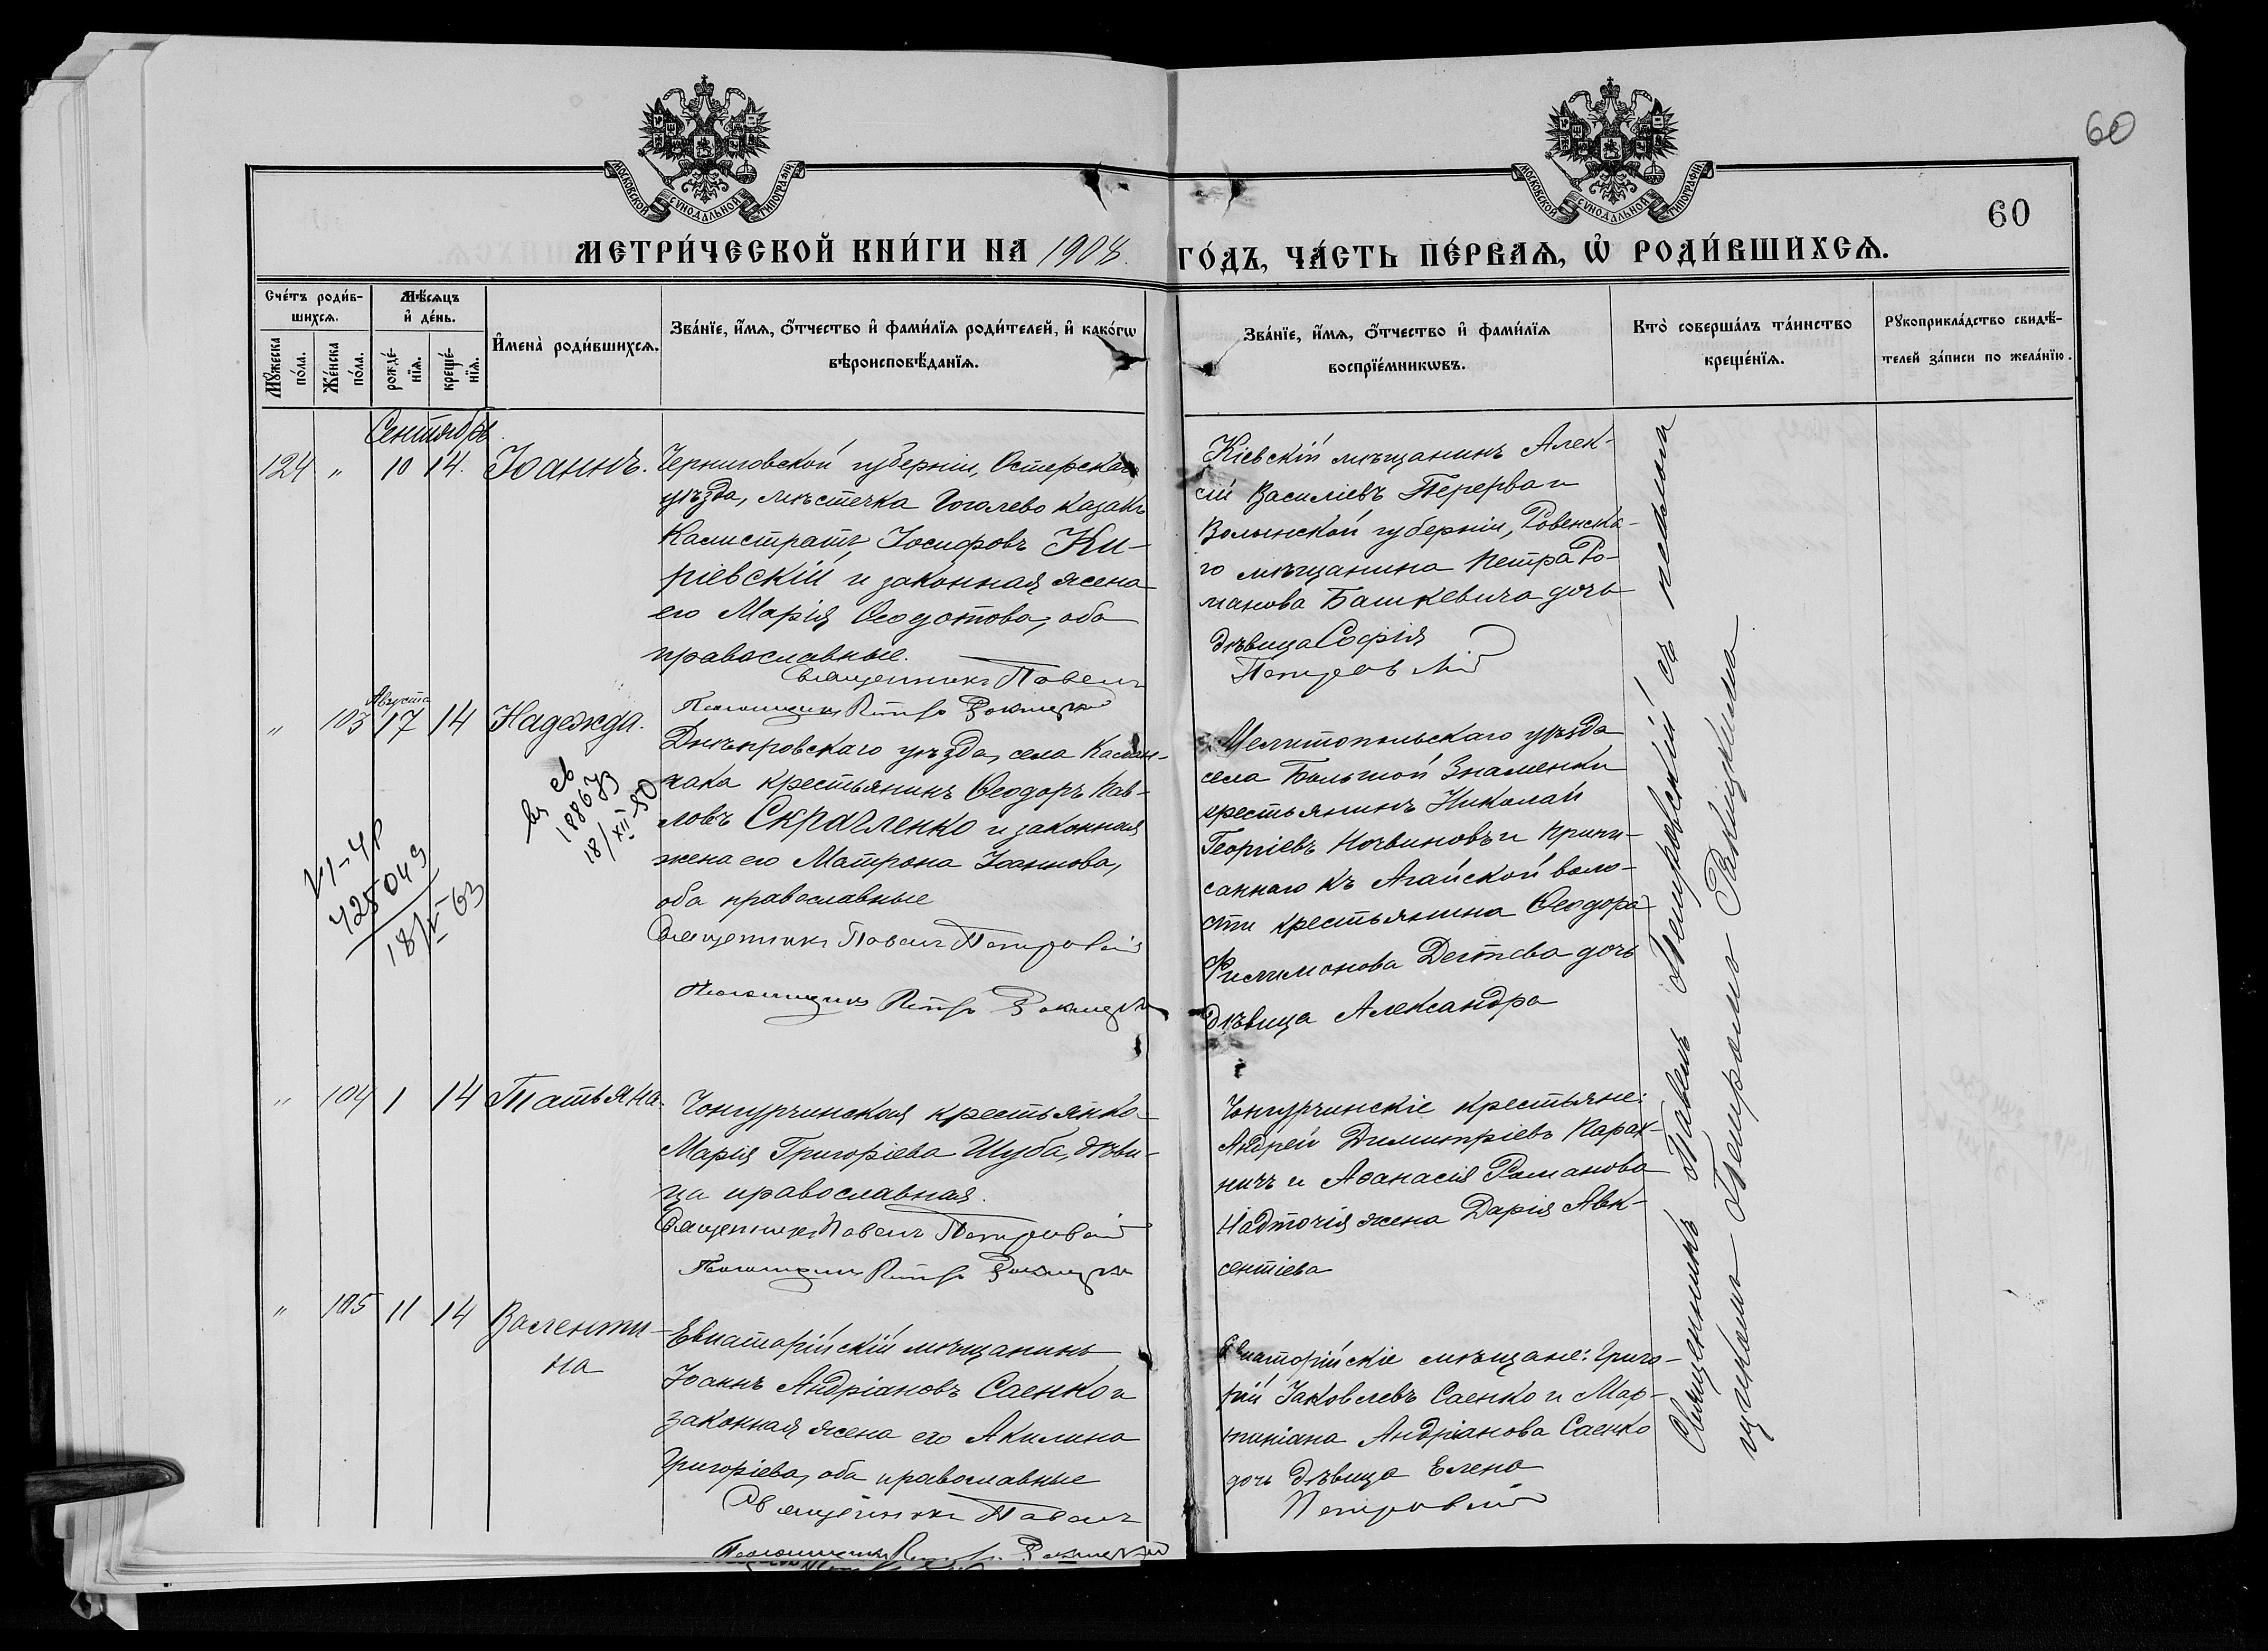 60
МОСКОВСКОЙ СУНОДАЛЬНОЙ ТИПОГРАФІИ.
МОСКОВСКОЙ СУНОДАЛЬНОЙ ТИПОГРАФІИ.
60
МЕТРИ́ЧЕСКОЙ КНИ́ГИ НА 1908.
ГО́ДЪ, ЧА́СТЬ ПЕ́РВАѦ, Ѽ РОДИ́ВШИХСѦ.
Сче́тъ роди́в-
шихсѧ.
Мѣ́сѧцъ
и҆ де́нь.
Мꙋ́жеска
по́ла.
Же́нска
по́ла.
рожде́-
нїѧ.
креще́-
нїѧ.
И҆мена̀ роди́вшихсѧ.
Зва́нїе, и҆́мѧ, ѻ҆́тчество и҆ фами́лїѧ роди́телей, и҆ како́гѡ
вѣроисповѣ́данїѧ.
Зва́нїе, и҆́мѧ, ѻ҆́тчество и҆ фами́лїѧ
воспрїе́мникѡвъ.
Кто̀ соверша́лъ та́инство
креще́нїѧ.
Рꙋкоприкла́дство свидѣ́-
телей за́писи по жела́нїю.
Сентябрь
124 " 10 14. Іоаннъ.
Черниговской губерніи, Остерскаго
уѣзда, мѣстечка Гоголево казакъ
Калистратъ Іосифовъ Ки-
ріевскій и законная жена
его Марія Ѳеодотова, оба
православные.
Священникъ Павелъ
Псаломщикъ Петръ Ракицкій
Кіевскій мѣщанинъ Алек-
сій Василіевъ Перерва и
Волынской губерніи, Ровенска-
го мѣщанина Петра Ро-
манова Башкевича дочь
дѣвица Софія
Петровскій
Августа
" 103 17 14 Надежда.
Днѣпровскаго уѣзда, села Калан-
чака крестьянинъ Ѳеодоръ Пав-
ловъ Скрагленко и законная
жена его Матрона Іоаннова,
оба православные
Священникъ Павелъ Петровскій
Псаломщикъ Петръ Ракицкій
188673
18/XII-50
VI-ЧР
425049
18/V-63
Мелитопольскаго уѣзда
села Большой Знаменки
крестьянинъ Николай
Георгіевъ Ночвиновъ и припи-
саннаго къ Агайской воло-
сти крестьянина Ѳеодора
Филимонова Дегтева дочь
дѣвица Александра
" 104 1 14 Татьяна.
Чонгурчинская крестьянка
Марія Григоріева Шуба, дѣви-
ца православная.
Священникъ Павелъ Петровскій
Псаломщикъ Петръ Ракицкій
Чонгурчинскіе крестьяне:
Андрей Димитріевъ Карах-
ничъ и Аѳанасія Романова
Надточія жена Дарія Авк-
сентіева
" 105 11 14 Валенти-
на
Евпаторійскій мѣщанинъ
Іоаннъ Андріановъ Саенко и
законная жена его Акилина
Григоріева, оба православные
Священникъ Павелъ
Псаломщикъ Петръ Ракицкій
Евпаторійскіе мѣщане: Григо-
рій Іаковлевъ Саенко и Мар-
тиніана Андріанова Саенко
дочь дѣвица Елена
Петровскій
Священникъ Павелъ Петровскій съ псалом
щикомъ Петромъ Ракицкимъ